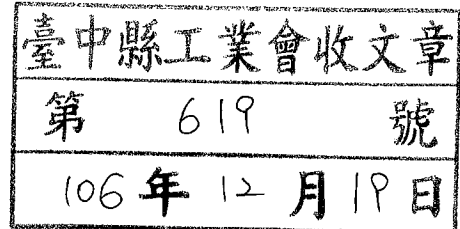 臺中縣工業會收文章
第 619 號
106年12月19日